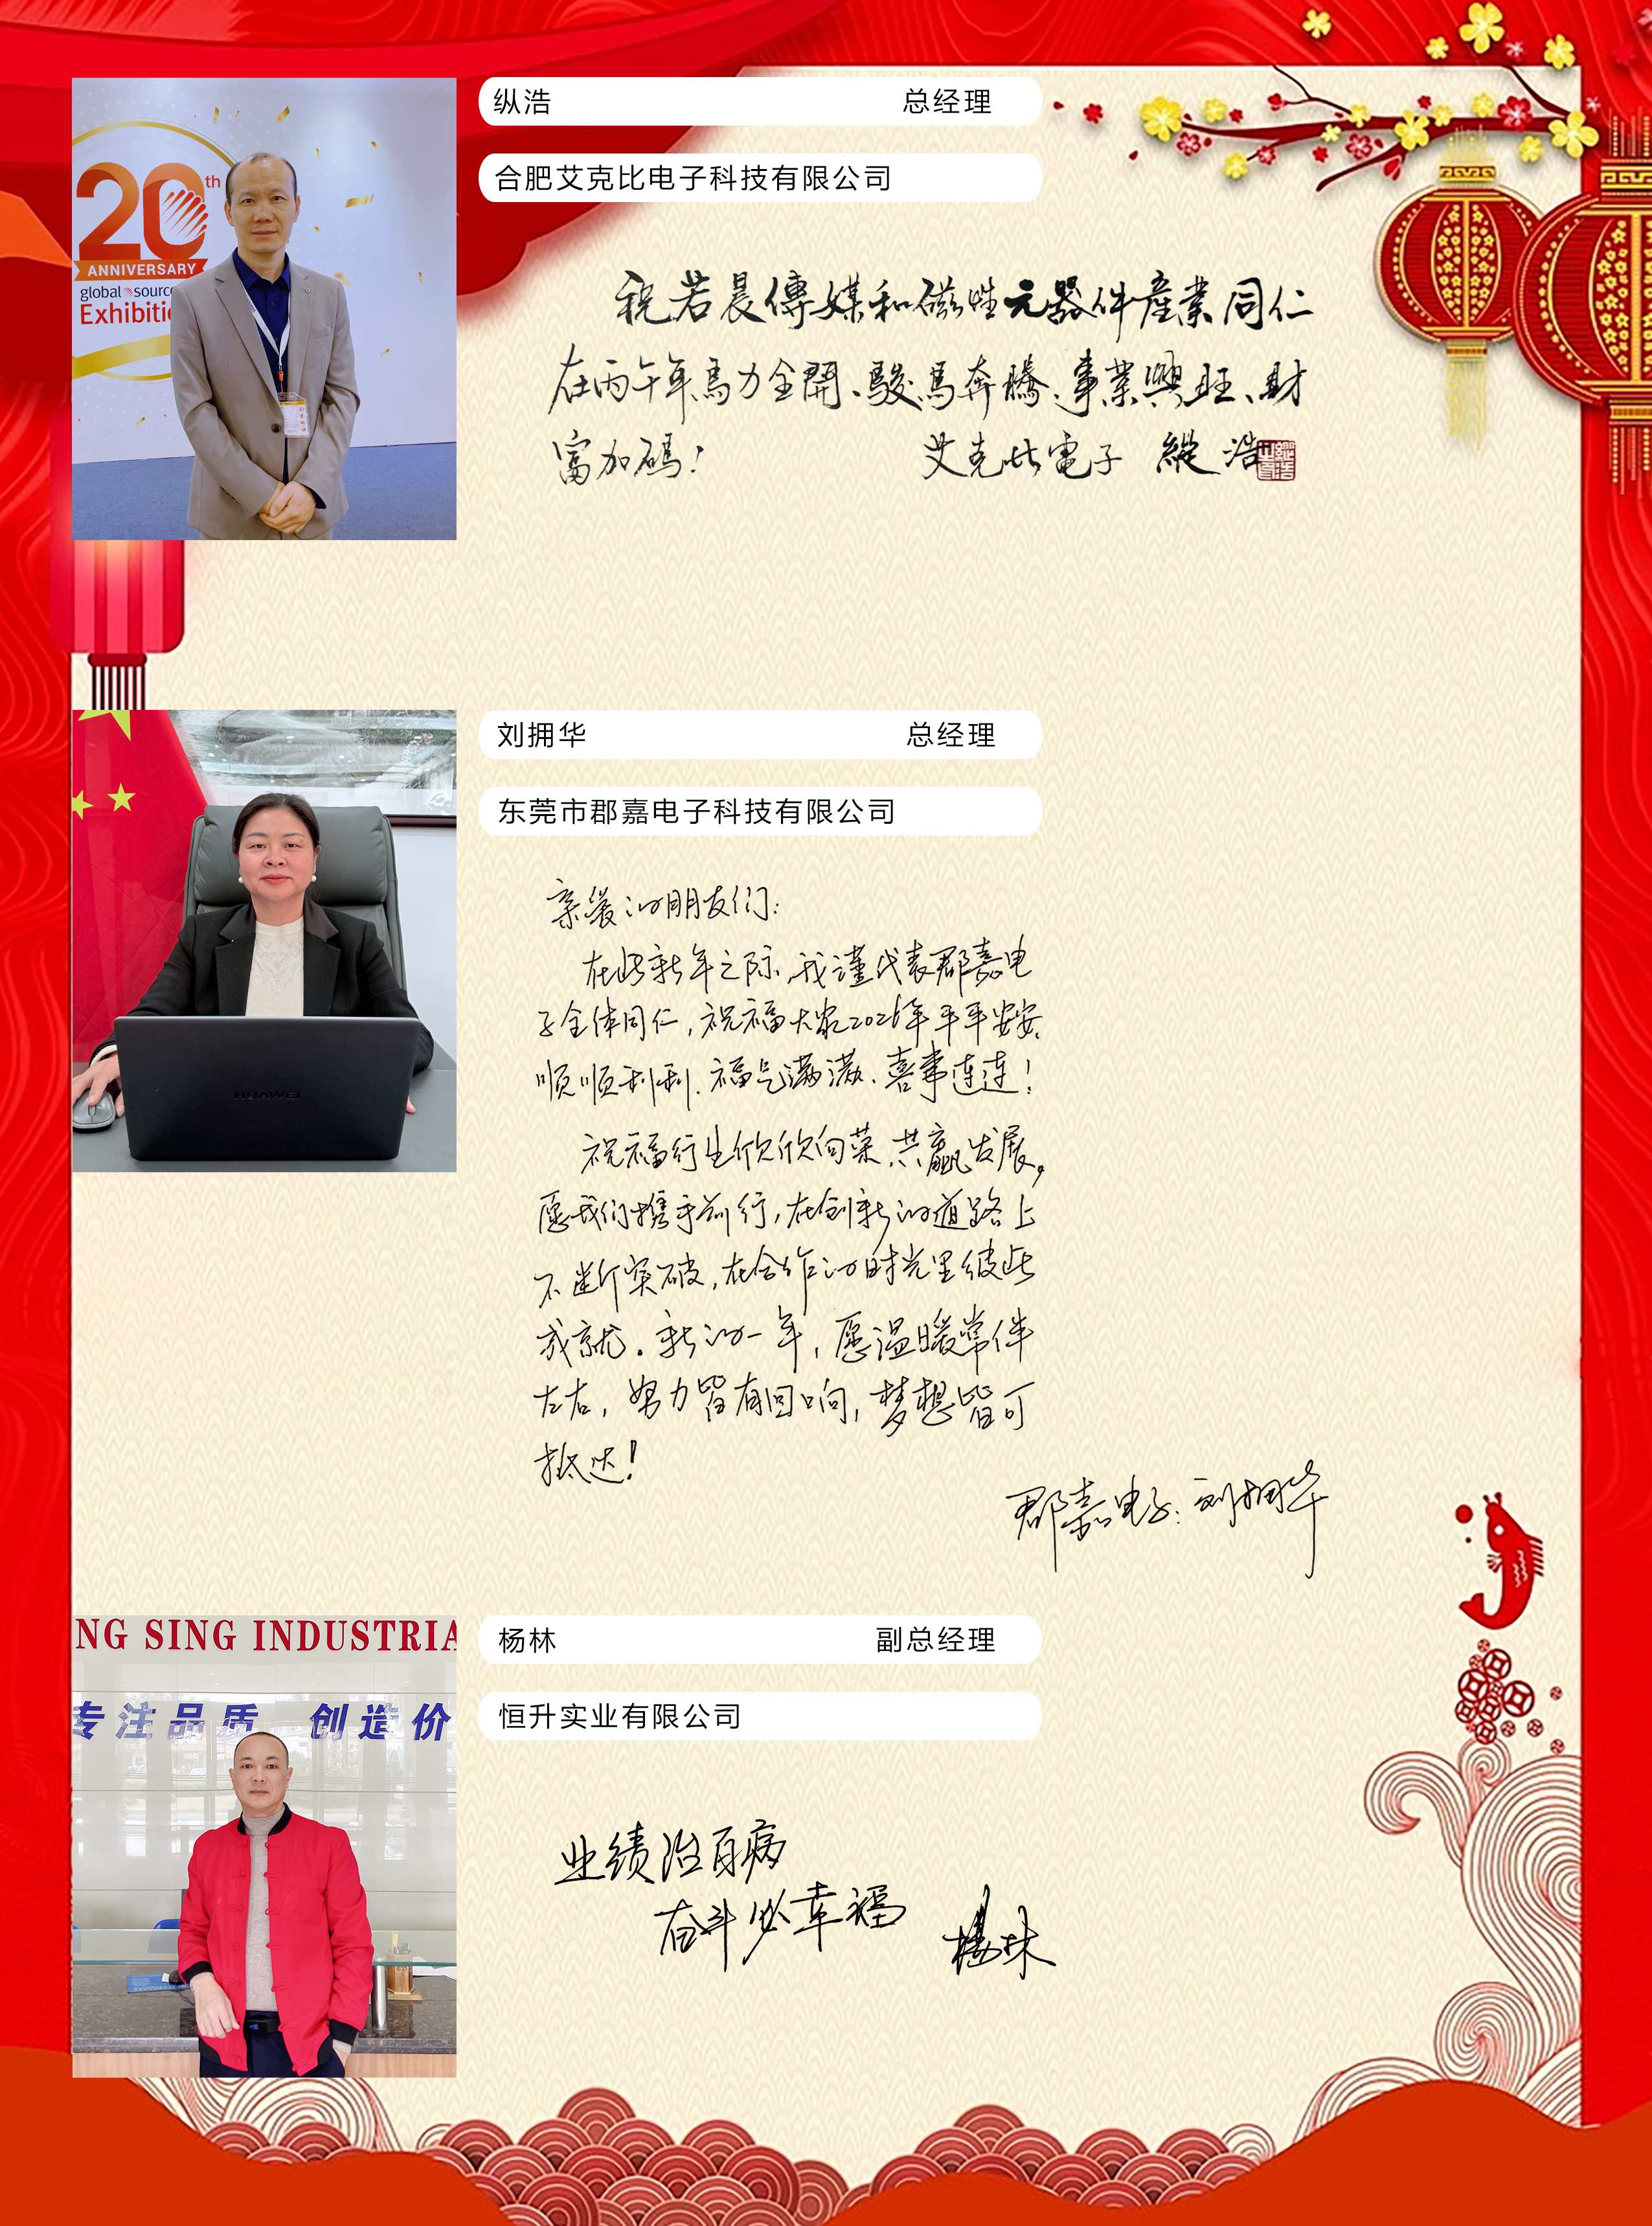 20th
ANNIVERSARY
global sourc
Exhibiti
纵浩 总经理
合肥艾克比电子科技有限公司
祝若晨傳媒和磁性元器件產業同仁
在丙午年馬力全開、駿馬奔騰、事業興旺、財
富加碼！
艾克比電子 縱浩
刘拥华 总经理
东莞市郡嘉电子科技有限公司
HUAWEI
亲爱的朋友们：
在此新年之际，我谨代表郡嘉电
子全体同仁，祝福大家2026年平平安安、
顺顺利利、福气满满、喜事连连！
祝福行业欣欣向荣，共赢发展，
愿我们携手前行，在创新的道路上
不断突破，在合作的时光里彼此
成就。新的一年，愿温暖常伴
左右，努力皆有回响，梦想皆可
抵达！
郡嘉电子：刘拥华
NG SING INDUSTRIA
专注品质 创造价
杨林 副总经理
恒升实业有限公司
业绩治百病
奋斗必幸福
杨林